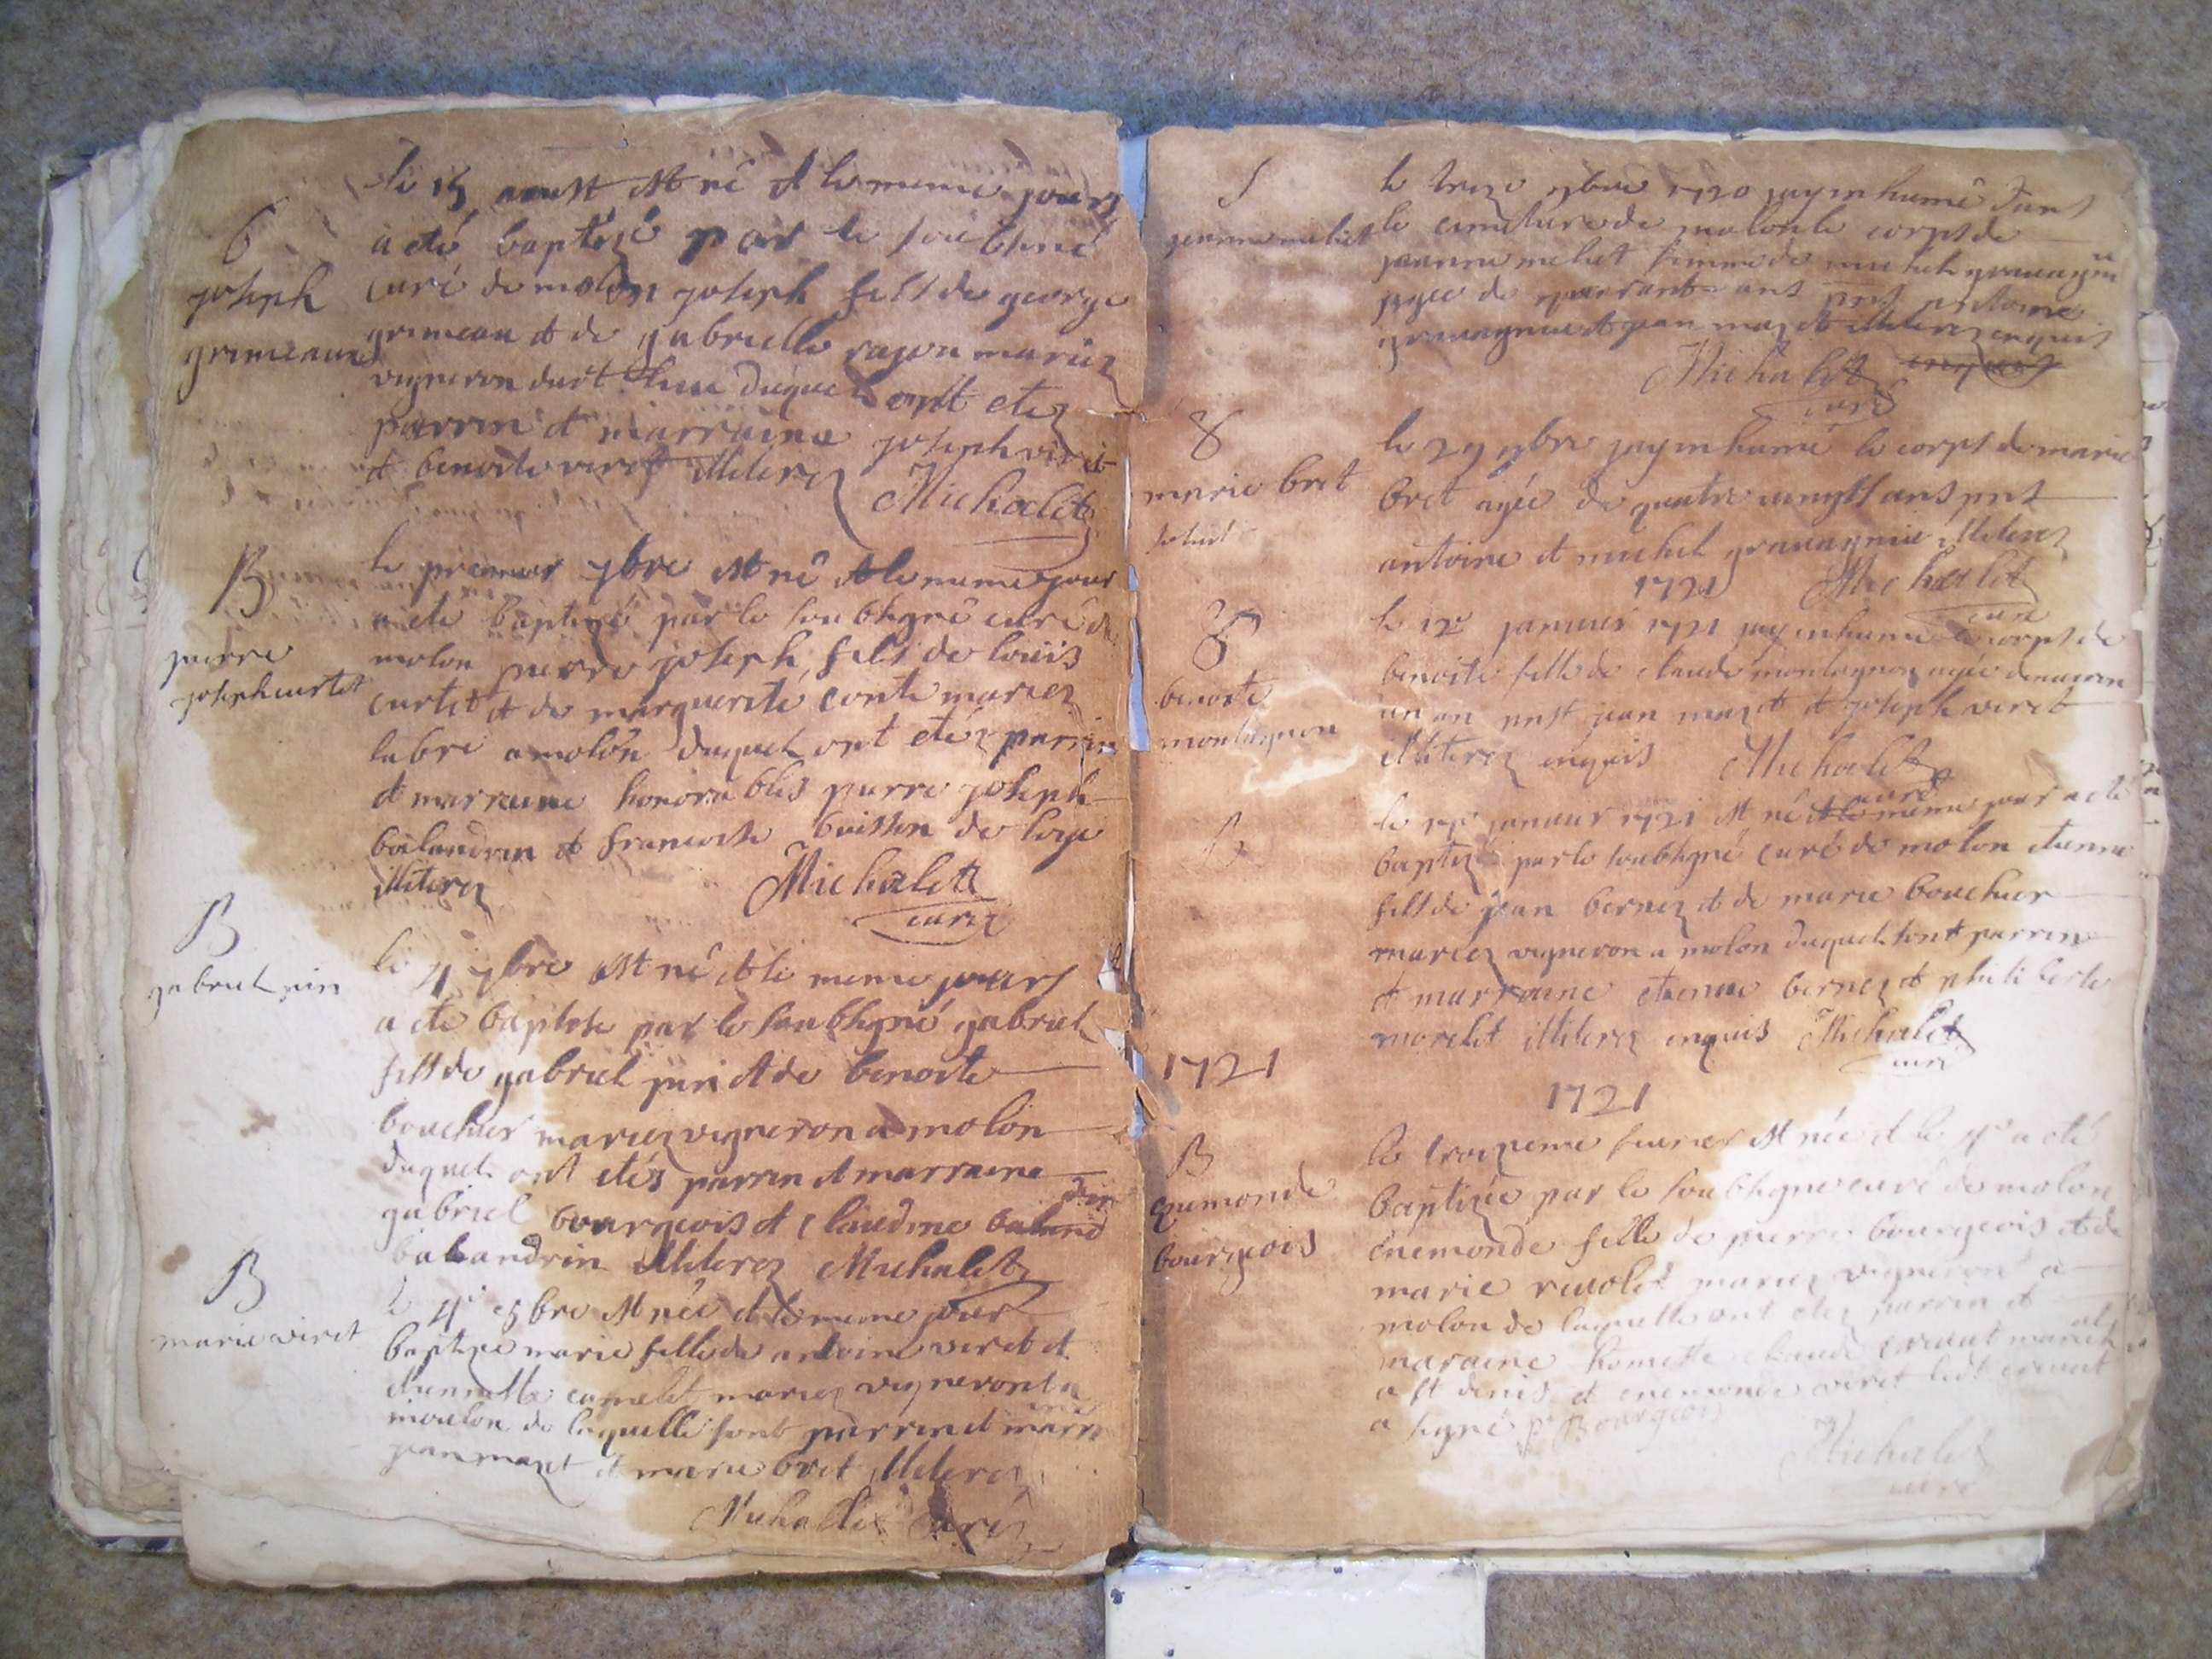 le 15 aoust est né et le meme jours
a eté baptizé par le soubsiné
curé de molon joseph fils de george
grimeau et de gabrielle rajon mariez
vigneron duquel ont etez
parrin et marraine joseph viret
et benoite viret illiterez
Michalet
B
joseph
grimeaux
le premier 7bre est né et le meme jour
a eté baptizé par le soubsigné curé de
molon pierre joseph fils de louis
curtet et de marguerite conte mariez
labre a molon duquel ont etéz parrin
et marraine honorables pierre joseph
balandrin et francoise buisson de loye
illiterez Michalet
curez
B
pierre
joseph curtet
le 4 7bre est né et le meme jours
a eté baptise par le soubsigné gabriel
fils de gabriel juin et de benoite
bouchier mariez vigneron a molon
duquel ont etés parrin et marraine
gabriel bourgeois et claudine baland
drin
balandrin illiterez Michalet
B
gabriel
le 4e est née et le meme jour
baptizee marie fille de antoine viret et
etiennette camelet mariez vigneront a
moulon de laquelle sont parrin et marr
aine
jean mazet et marie bret illiterez
Michallet curéz
B
marie viret
S
jeanne meliet
le treze 9bre 1720 jay inhumé dans
le cimetiere de molon le corps de
jeanne meliet femme de michel gravagnie
agee de quarante ans pnts antoine
gravagnie et jean mazet illiterez enquis
Michalet enquis
curé
S
marie bret
le 29 9bre jay inhumé le corps de marie
bret agée de quatre vingts ans pnts
antoine et michel gravagnie illiterez
1721 Michalet
curé
S
benoite
montagnon
le 12e janvier 1721 jay inhumé le corps de
benoite fille de claude montagnon agée denviron
un an pnst jean mazet et joseph viret
illiterez enquis Michalet
curé
B
le janvier 1721 est né et le meme jour a eté
baptizé par le soubsigné curé de molon etienne
fils de jean bernez et de marie bouchier
mariez vigneron a molon duquel sont parrin
et marraine etienne bernez et philiberte
morelet illiterez enquis Michalet
curé
1721
1721
B
enemonde
bourgeois
le troizieme fevrier est née et le 4e a eté
baptizée par le soubsigne curé de molon
enemonde fille de pierre bourgeois et de
marie rivolet mariez vigneron a
molon de laquelle ont etez parrin et
maraine homeste claude cravat march
al
a st denis et enemonde viret ledt cravat
a signé pr Bourgeois
Michalet
curé